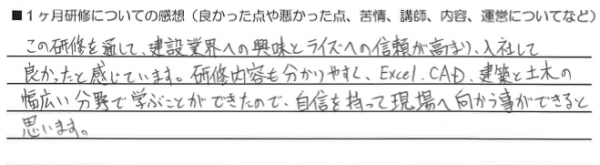 ■１ヶ月研修についての感想（良かった点や悪かった点、苦情、講師、内容、運営についてなど）
この研修を通して、建設業界への興味とライズへの信頼が高まり、入社して
良かったと感じています。研修内容も分かりやすく、Excel、CAD、建築と土木の
幅広い分野で学ぶことができたので、自信を持って現場へ向かう事ができると
思います。